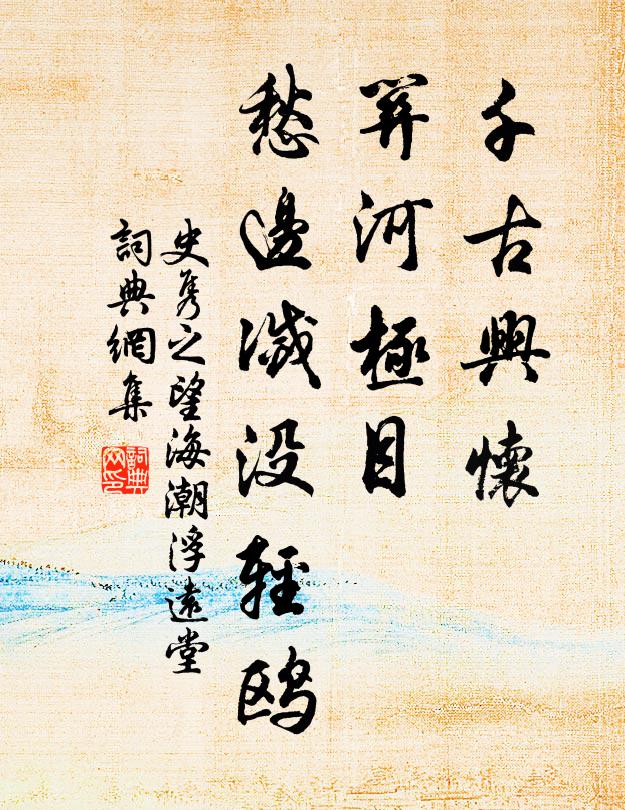 千古興懷
關河極目
愁邊滅没輕鷗
史隽之望海潮浮遠堂
詞典網集
詞典
网印